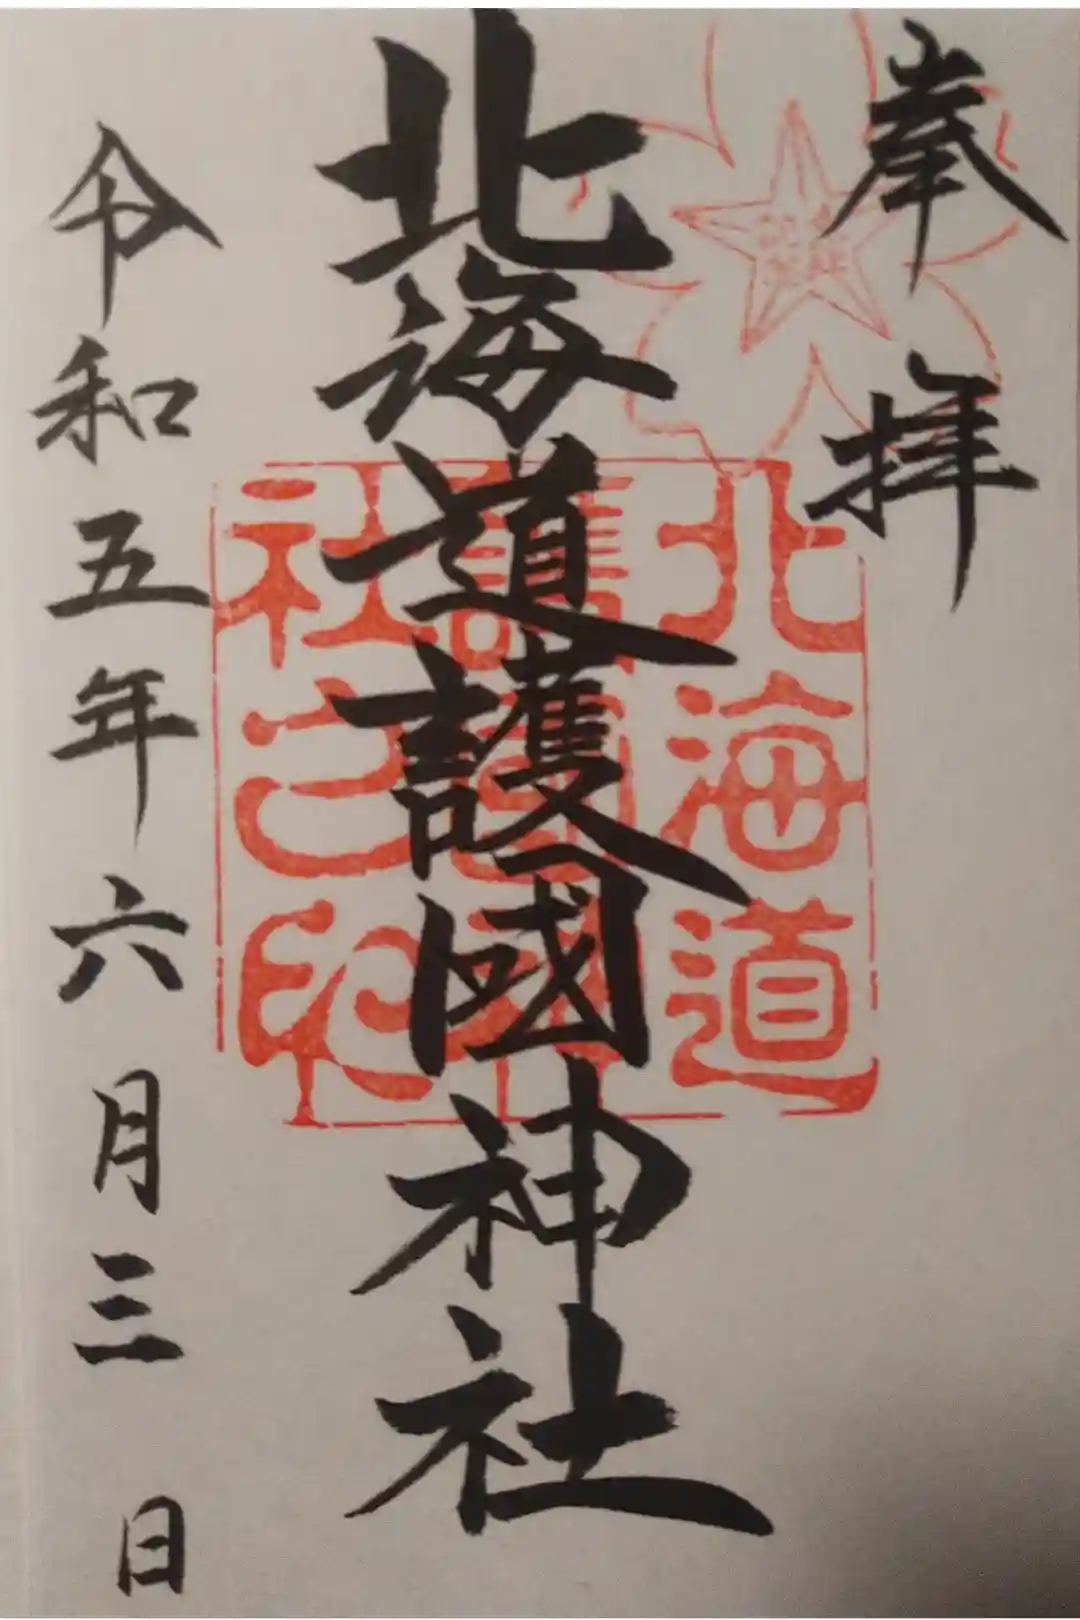 奉拝
北海道護國神社
北海道
護國神
社之印
令和五年六月三日